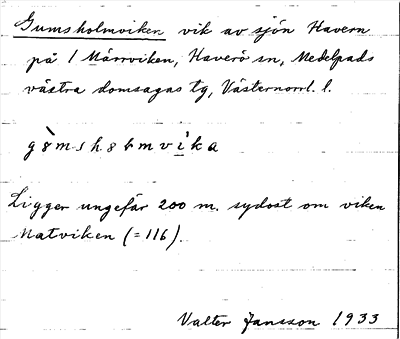 Gumsholmviken vik av sjön Havern
på 1 Märrviken, Haverö sn, Medelpads
västra domsagas tg, Västernorrl. l.
Ligger ungefär 200 m. sydost om viken
Matviken (=116).
Valter Jansson 1933